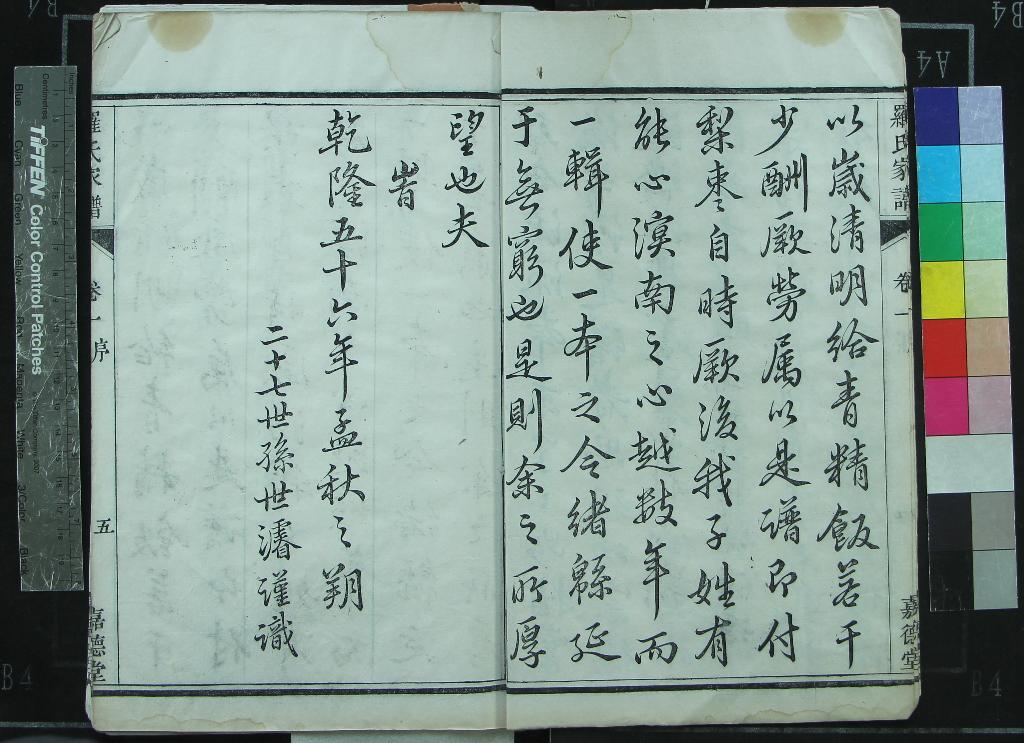 羅氏家譜 卷一 嘉德堂
以嵗清明給青精飯若干
少酬厥勞属以是譜即付
梨枣自時厥後我子姓有
能心溟南之心越数年而
一輯使一本之令緒緜延
于無窮也是則余之所厚
望也夫
旹
乾隆五十六年孟秋之朔
二十七世孫世濬謹識
羅氏家譜 卷一 序 五 嘉德堂
Inches
Centimetres
TIFFEN Color Control Patches
Blue
Cyan
Green
Yellow
Red
Magenta
White
3/Color
Black
A4
B4
B4
B4
B4